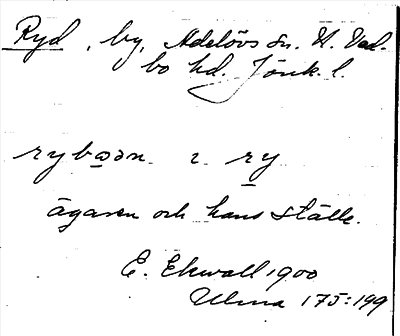 Ryd, by, Adelövs sn. N. Ved-
bo hd. Jönk. l.
rybo̲ən. ɿ ry̲
ägaren och hans ställe.
E. Ekwall 1900
Ulma 175:199